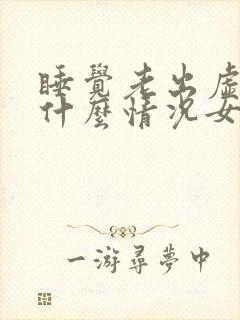 睡覺老出虛
什麼情況女
一游尋夢中